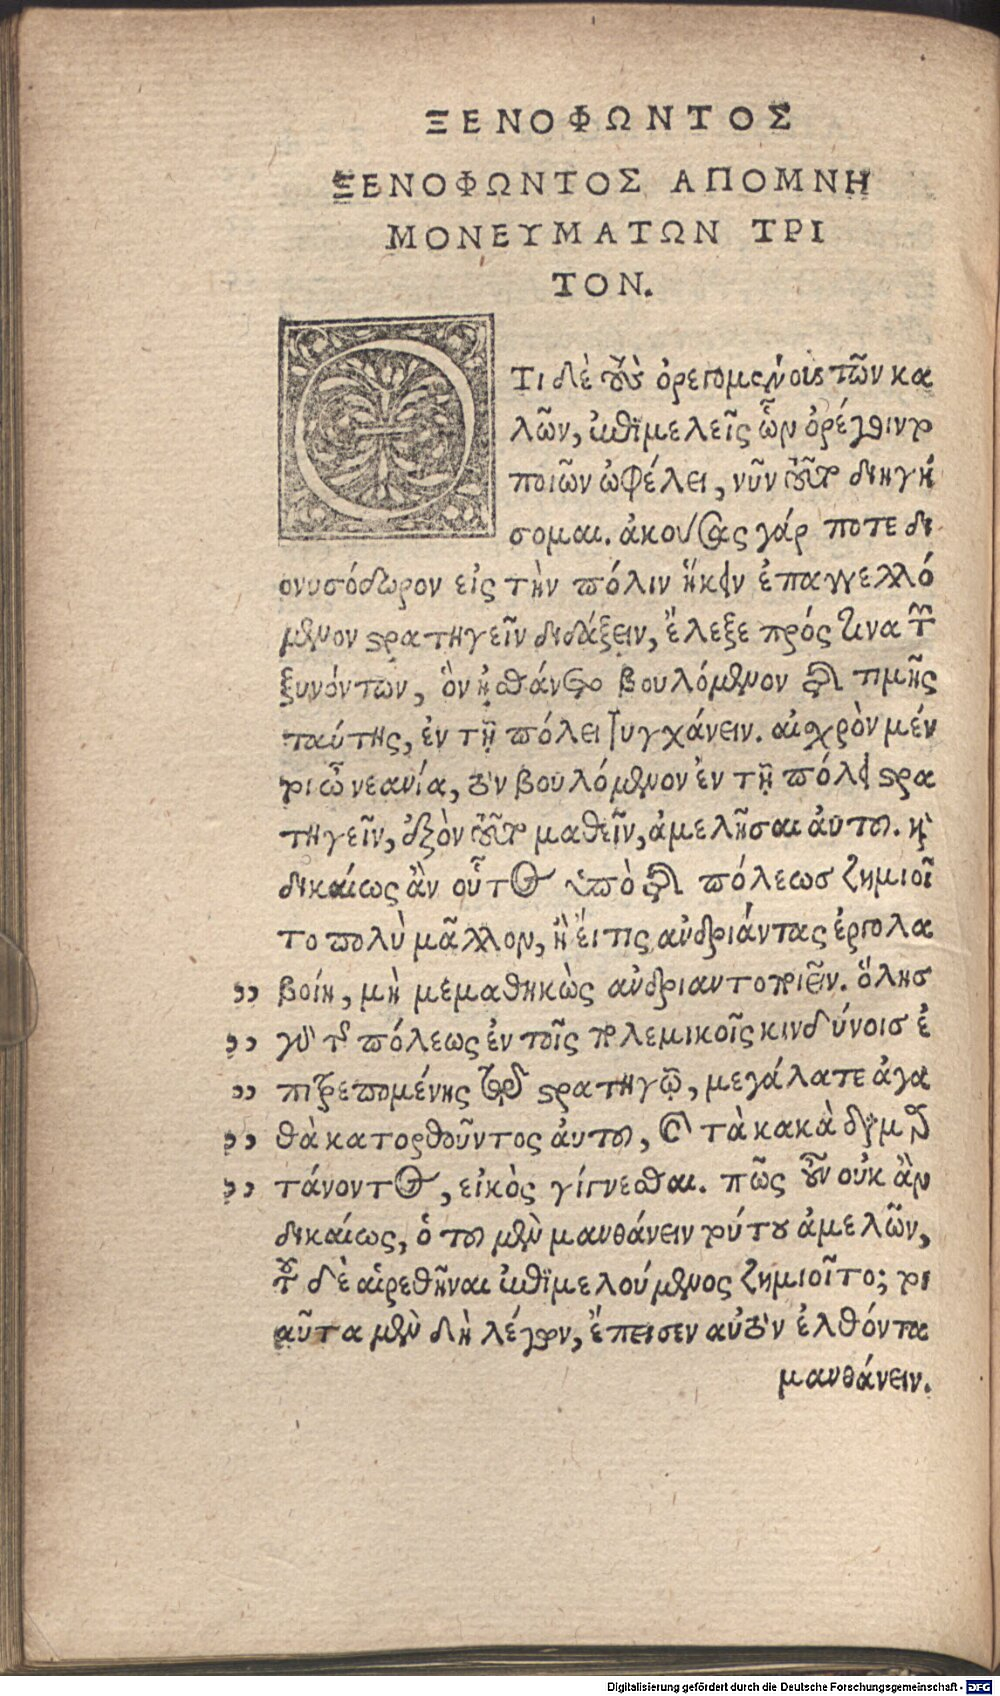 ΞΕΝΟΦΩΝΤΟΣ
ΞΕΝΟΦΩΝΤΟΣ ΑΠΟΜΝΗ
ΜΟΝΕΥΜΑΤΩΝ ΤΡΙ
ΤΟΝ.
ΟΤΙ δὲ τοὺς ὀρεγομένους τῶν κα
λῶν, ἐπιμελεῖς ὧν ὀρέγοιντο
ποιῶν ὠφέλει, νῦν τοῦτο διηγή
σομαι. ἀκούσας γάρ ποτε δι
ονυσόδωρον εἰς τὴν πόλιν ἥκειν ἐπαγγελλό
μενον στρατηγεῖν διδάξειν, ἔλεξε πρός τινα τῶν
ξυνόντων, ὃν ᾐσθάνετο βουλόμενον τῆς τιμῆς
ταύτης, ἐν τῇ πόλει τυγχάνειν. αἰσχρὸν μέν
τοι ὦ νεανία, τὸν βουλόμενον ἐν τῇ πόλει στρα
τηγεῖν, ἐξὸν τοῦτο μαθεῖν, ἀμελῆσαι αὐτοῦ. καὶ
δικαίως ἂν οὗτος ὑπὸ τῆς πόλεωσ ζημιοῖ
το πολὺ μᾶλλον, ἢ εἴ τις ἀνδριάντας ἐργολα
,, βοίη, μὴ μεμαθηκὼς ἀνδριαντοποιεῖν. ὅλησ
,, γὰρ τῆς πόλεως ἐν τοῖς πολεμικοῖς κινδύνοισ ἐ
,, πιτρεπομένης τῷ στρατηγῷ, μεγάλα τε ἀγα
,, θὰ κατορθοῦντος αὐτοῦ, καὶ τὰ κακὰ διαμαρ
,, τάνοντος, εἰκὸς γίγνεσθαι. πῶς οὖν οὐκ ἂν
δικαίως, ὁ τοῦ μὲν μανθάνειν τοῦτο ἀμελῶν,
τοῦ δὲ αἱρεθῆναι ἐπιμελούμενος ζημιοῖτο; τοι
αῦτα μὲν δὴ λέγων, ἔπεισεν αὐτὸν ἐλθόντα
μανθάνειν.
Digitalisierung gefördert durch die Deutsche Forschungsgemeinschaft - DFG